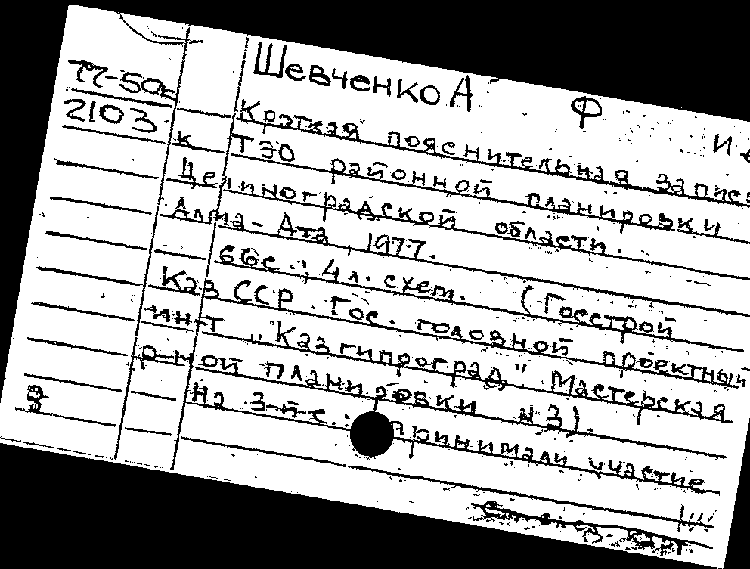 ТГ-50б
2103
Шевченко А Ф И
Краткая пояснительная запис
к ТЭО районной планировки
Целиноградской области.
Алма-Ата, 1977.
66с.; 4 л. схем. (Госстрой
КазССР. Гос. головной проектный
ин-т "Казгипроград" Мастерская
р-ной планировки №3).
На 3-й с.: Принимали участие
См. след. карт.